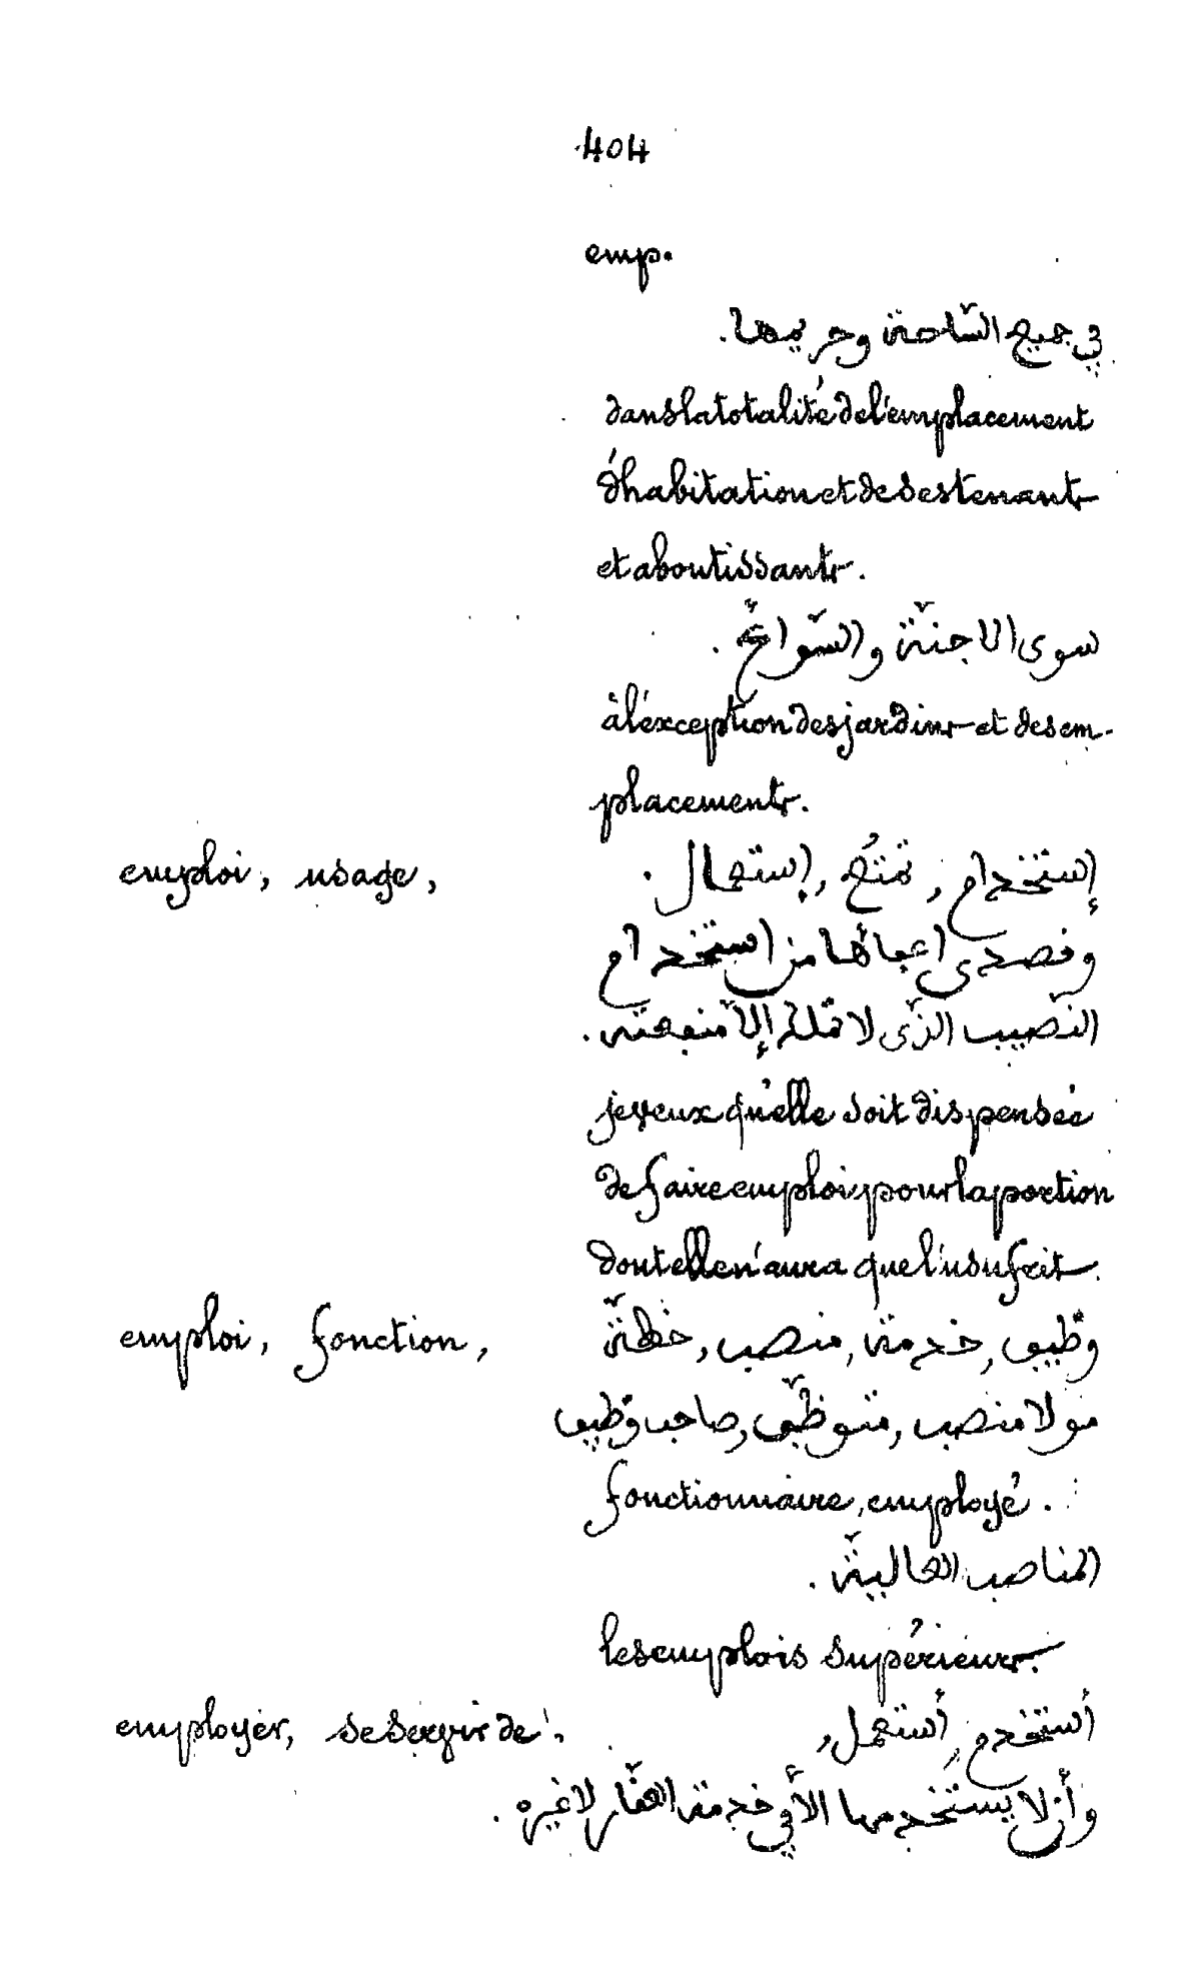 404
emp.
في جميع السّاحة وحريمها.
dans la totalité de l'emplacement
d'habitation et de ses tenants
et aboutissants.
سوى الاجنّة والسّوانح.
à l'éxception des jardins et des em-
placements.
emploi, usage, إستخدام, تمتّع, إستعمال.
وقصدى اعبائها من استخدام
النّصيب الذّى لا تملك إلّا منفعته.
je veux qu'elle soit dispensée
de faire emploi pour la portion
dont elle n'aura que l'usufruit.
emploi, fonction, وظيف, خدمة, منصب, خطّة
مولا منصب, متوظّف, صاحب وظيف
fonctionnaire, employé.
المناصب العاليّة.
les emplois supérieurs.
employer, se servir de, أستخدم, أستعمل,
وأن لا يستخدمها الّا في خدمة العقّار لا غيره.